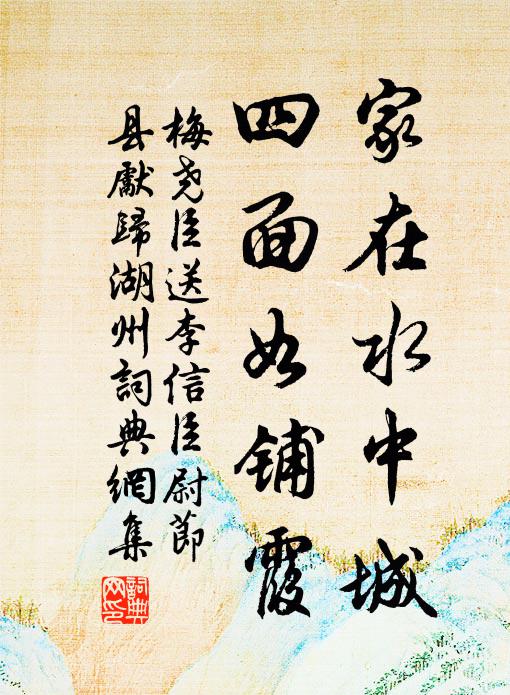 家在水中城
四面如铺霞
梅尧臣送李信臣尉節
县獻歸湖州詞典網集
詞典網印